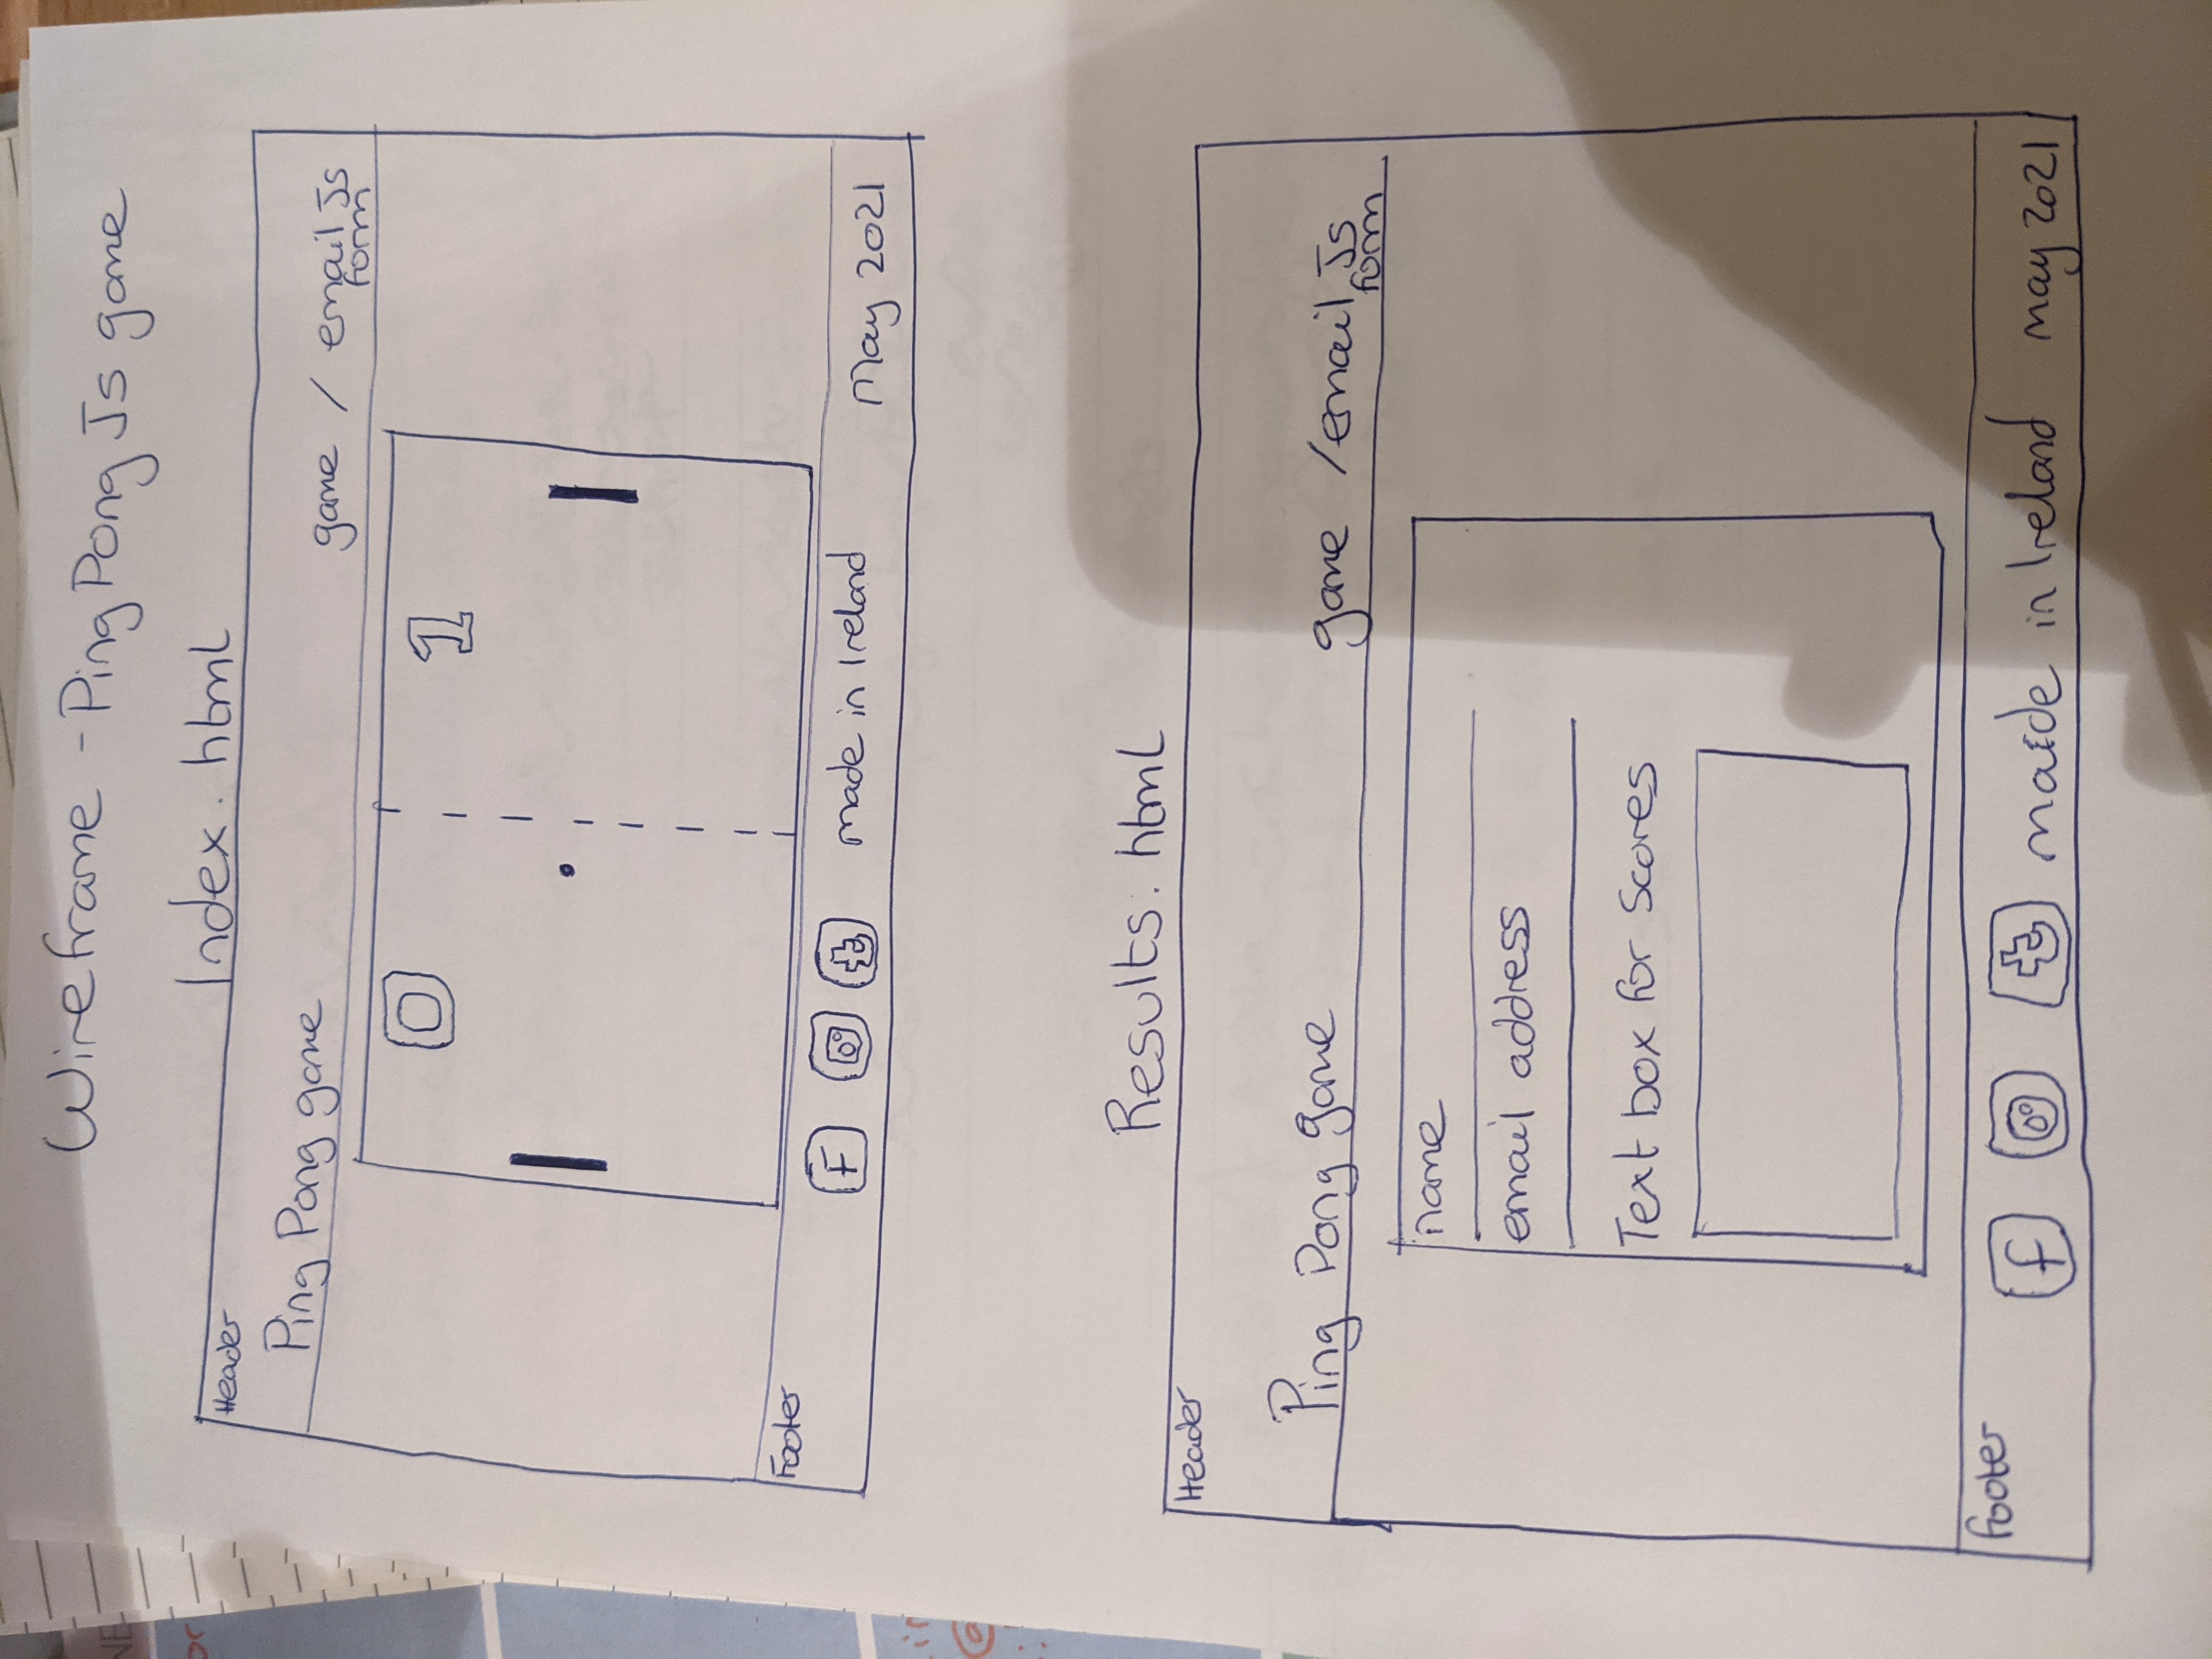 Wireframe - Ping Pong Js game
Index. html
Header
Ping Pong game
game / email Js
form
0 1
Footer
F made in Ireland May 2021
Results. html
Header
Ping Pong game
game /email Js
form
name
email address
Text box for scores
Footer
f maide in Ireland may 2021
NE
or
@